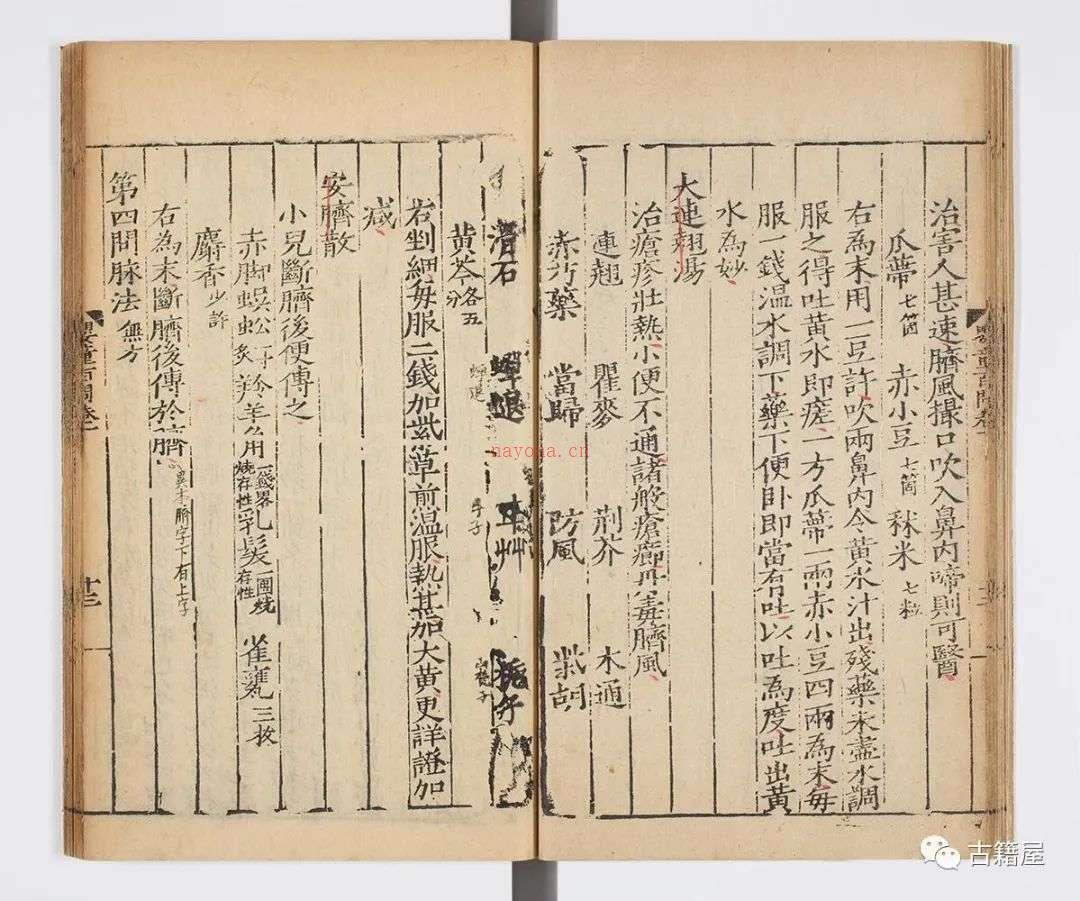 治害人甚速臍風撮口吹入鼻内啼則可醫
瓜蔕七箇 赤小豆七箇 秫米七粒
右為末用一豆許吹兩鼻内令黄水汁出殘藥末盡水調
服之得吐黄水即瘥一方瓜蔕一兩赤小豆四兩為末每
服一錢温水調下藥下便卧即當有吐以吐為度吐出黄
水為妙
大連翹湯
治瘡疹壯熱小便不通諸般瘡癤丹毒臍風
連翹 瞿麥 荆芥 木通
赤芍藥 當歸 防風 柴胡
滑石 蟬退 甘艸
蟬退 山梔子
黄芩各五分
右剉細每服二錢加紫草煎温服熱甚加大黄更詳證加
减
安臍散
小兒斷臍後便傳之
赤脚蜈蚣一寸炙 羚羊角一錢畧燒存性 乳髮一團燒存性 雀甕三枚
麝香少許
右為末斷臍後傳於臍異本臍字下有上字
第四問脉法無方
嬰童百問卷一
十三
嬰童百問卷一
nayona.cn
古籍屋